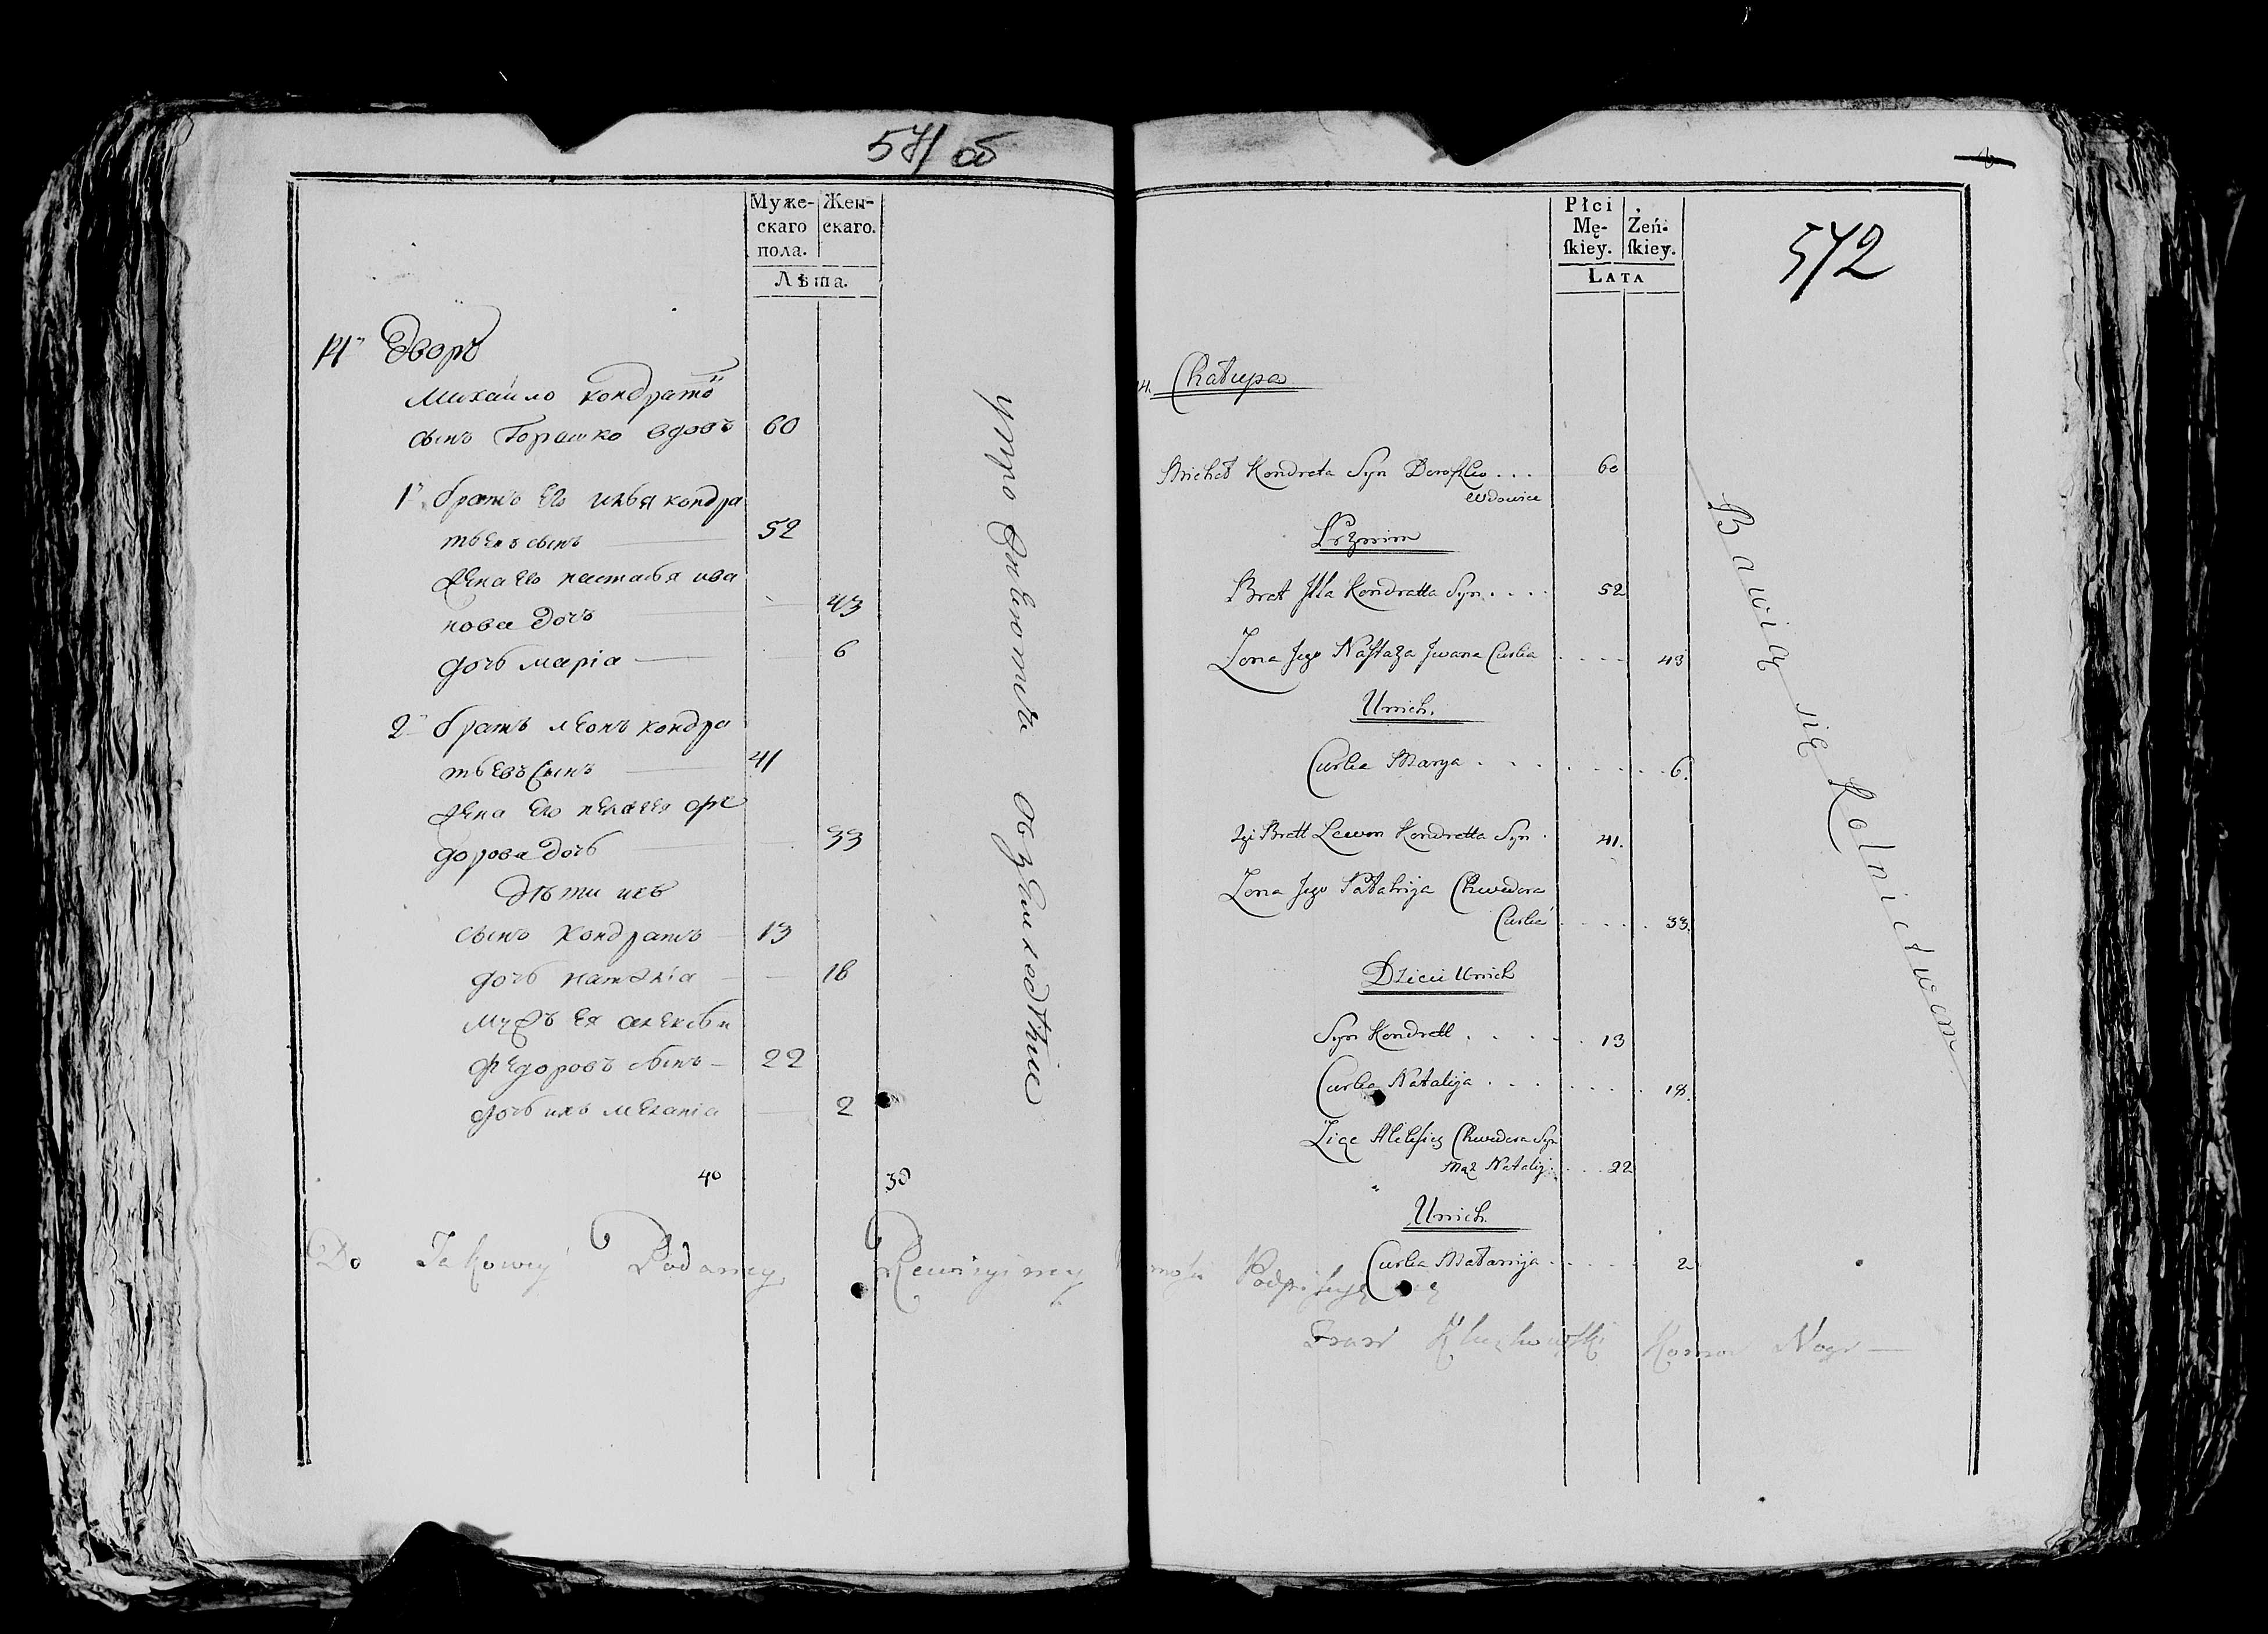 571 об
Муже-
скаго
пола.
Жен-
скаго.
Лѣта.
14" Дворъ
Михайло кондратъ
сынъ Горашко вдовъ 60
1" братъ Его илья кондра
тьевъ сынъ 52
жена его настасья ива
нова дочь 43
дочь марiа 6
2" братъ леонъ кондра
тьевъ сынъ 41
жена Его пелагея фе
дорова дочь 33
дѣти ихъ
сынъ кондратъ 13
дочь наталiа 18
мужъ Ея алексѣй
Федоровъ сынъ 22
дочь ихъ меланiа 2
40 30
Do Takowey Podaney Rewizyiney Podpisuję się
572
Płci
Mę-
ſkiey.
Zeń-
ſkiey.
LATA
14. Chałupa
Michał Kondrata Syn Doroſzko . . . 60
Wdowiec
Przy nim
Brat Jlla Kondratta Syn . . . . 52
Zona Jego Naſtaza Jwana Curka . . . . 43
U nich.
Curka Marya . . . . . . 6.
2gi Bratt Lewon Kondratta Syn . 41.
Zona Jego Pałahija Chwedora
Curka . . . . . 33.
Dzieci U nich
Syn Kondratt . . . . . 13
Curka Natalija . . . . . . 18.
Zięć Alekſiey Chwedora Syn
Mąż Natalij . . . 22
U nich
Curka Małanija . . . . . 2
Bawią się Rolnictwem